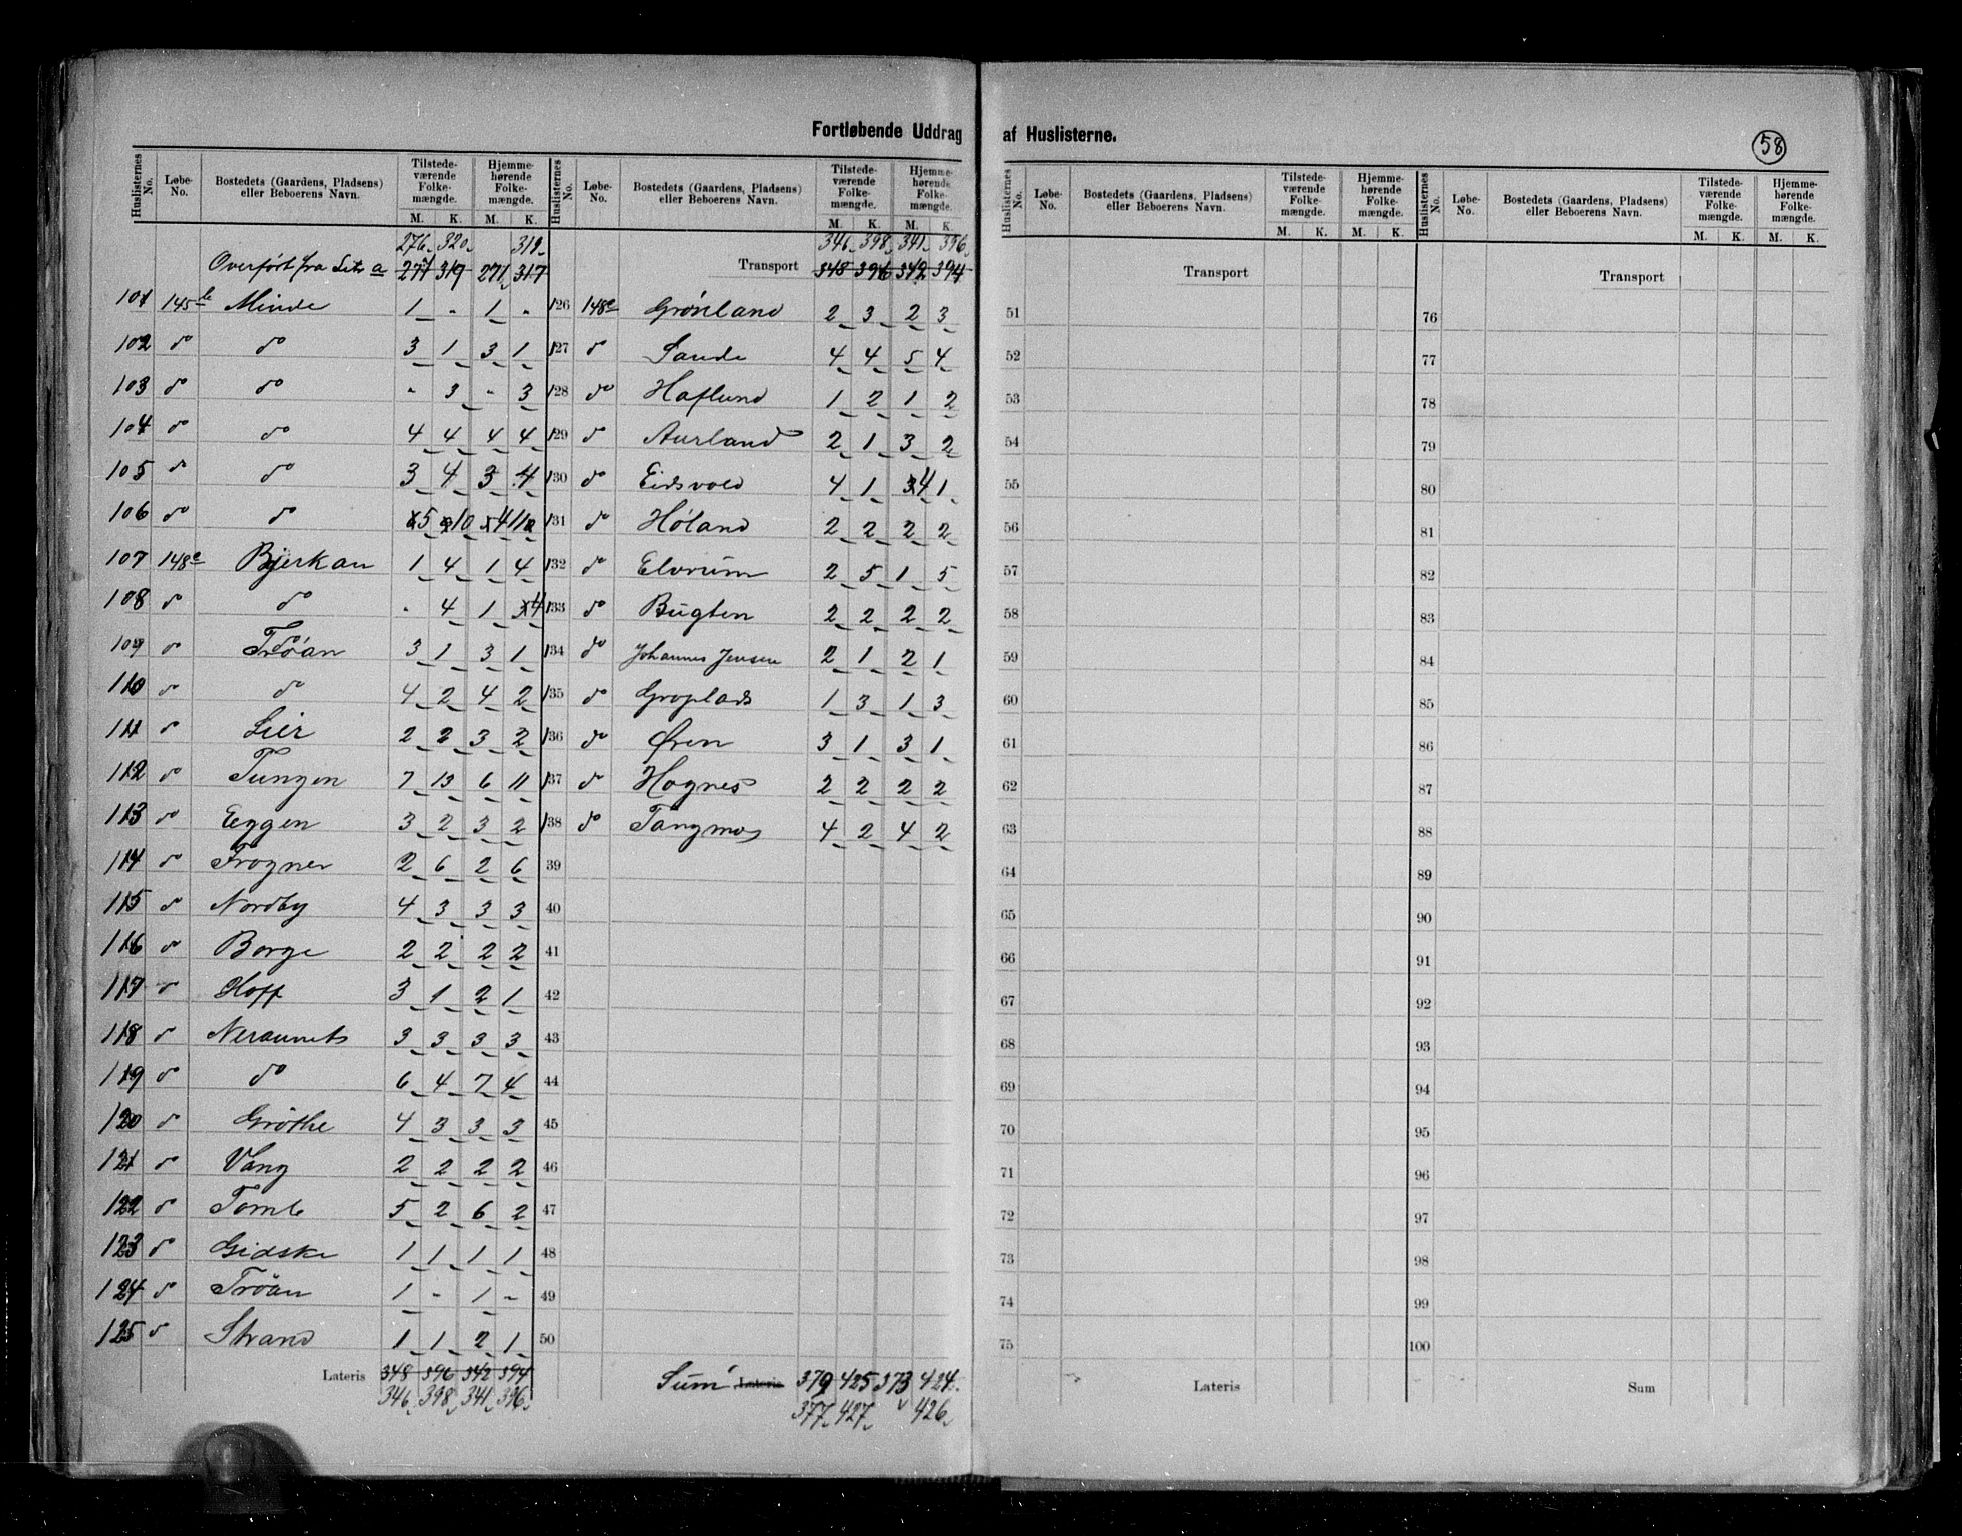 Fortløbende Uddrag af Huslisterne.
58
Huslisternes No. Løbe-No. Bostedets (Gaardens, Pladsens) eller Beboerens Navn. Tilstedeværende Folkemængde. M. K. Hjemmehørende Folkemængde. M. K.
276 320 319
Overført fra Litr a 277 319 271 317
101 145b Minde 1 - 1 -
102 do do 3 1 3 1
103 do do - 3 - 3
104 do do 4 4 4 4
105 do do 3 4 3 4
106 do do 5 10 4 11
107 148e Bjerkan 1 4 1 4
108 do do - 4 1 4
109 do Trøan 3 1 3 1
110 do do 4 2 4 2
111 do Lier 2 2 3 2
112 do Tungen 7 13 6 11
113 do Eggen 3 2 3 2
114 do Frogner 2 6 2 6
115 do Nordby 4 3 3 3
116 do Borge 2 2 2 2
117 do Hoff 3 1 2 1
118 do Neraunets 3 3 3 3
119 do do 6 4 7 4
120 do Grøthe 4 3 3 3
121 do Vang 2 2 2 2
122 do Tomb 5 2 6 2
123 do Gidske 1 1 1 1
124 do Trøan 1 - 1 -
125 do Strand 1 1 2 1
Lateris 348 396 342 394
346 398 341 396
Huslisternes No. Løbe-No. Bostedets (Gaardens, Pladsens) eller Beboerens Navn. Tilstedeværende Folkemængde. M. K. Hjemmehørende Folkemængde. M. K.
346 398 341 396
Transport 348 396 342 394
126 148e Grønland 2 3 2 3
127 do Sande 4 4 5 4
128 do Haflund 1 2 1 2
129 do Aurland 2 1 3 2
130 do Eidsvold 4 1 4 1
131 do Høland 2 2 2 2
132 do Elvrum 2 5 1 5
133 do Bugten 2 2 2 2
134 do Johannes Jensen 2 1 2 1
135 do Groplads 1 3 1 3
136 do Øren 3 1 3 1
137 do Hognes 2 2 2 2
138 do Tangmo 4 2 4 2
39
40
41
42
43
44
45
46
47
48
49
50
Sum Lateris 379 425 373 424
377 427 426
Huslisternes No. Løbe-No. Bostedets (Gaardens, Pladsens) eller Beboerens Navn. Tilstedeværende Folkemængde. M. K. Hjemmehørende Folkemængde. M. K.
Transport
51
52
53
54
55
56
57
58
59
60
61
62
63
64
65
66
67
68
69
70
71
72
73
74
75
Lateris
Huslisternes No. Løbe-No. Bostedets (Gaardens, Pladsens) eller Beboerens Navn. Tilstedeværende Folkemængde. M. K. Hjemmehørende Folkemængde. M. K.
Transport
76
77
78
79
80
81
82
83
84
85
86
87
88
89
90
91
92
93
94
95
96
97
98
99
100
Sum